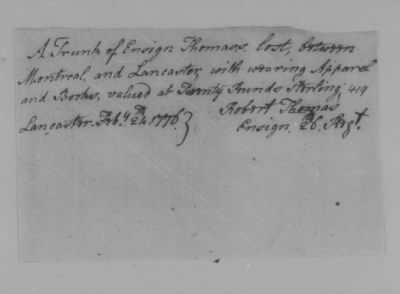 A Trunk of Ensign Thomas's, lost, between
Montreal, and Lancaster, with wearing Apparel
and Books, valued at Twenty Pounds Sterling 419
Robert Thomas
Lancaster Feb.y 24th 1776.}
Ensign 26. Regt.